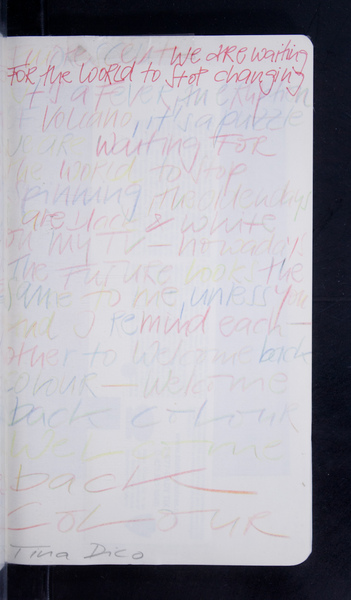 We are waiting
FOR the WORLD to stop changing
It's a fever, an eruption
a Volcano, it's a puzzle
you're waiting FOR
the world to stop
spinning, the olden days
are black & white
on my TV — nowadays
The FUTURE looks the
same to me, unless you
and I remind each —
other to Welcome back
colour — Welcome
back COLOUR
Welcome
back
COLOUR
Tina Dico